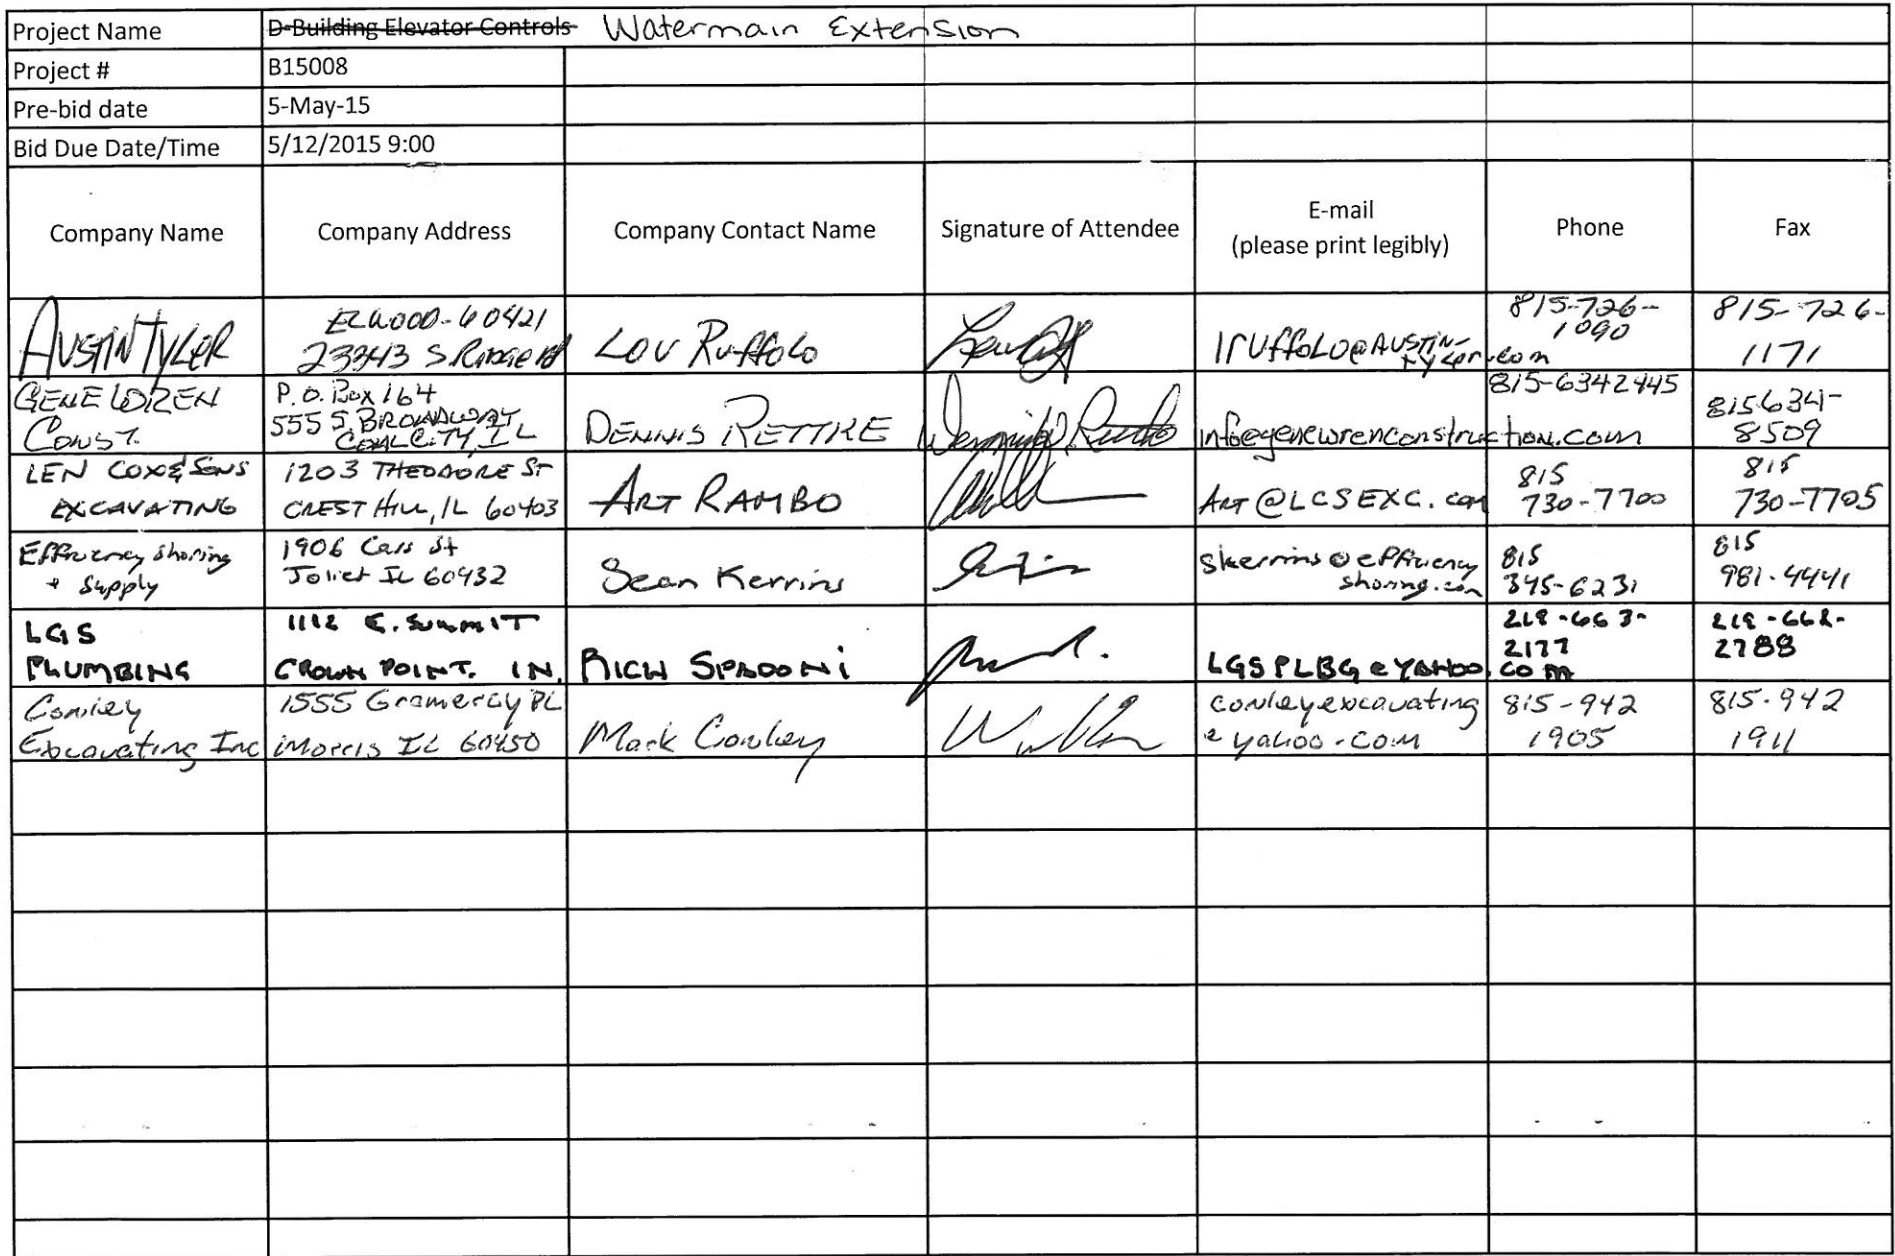 Project Name D-Building Elevator Controls Watermain Extension
Project # B15008
Pre-bid date 5-May-15
Bid Due Date/Time 5/12/2015 9:00
Company Name Company Address Company Contact Name Signature of Attendee E-mail Phone Fax
(please print legibly)
AUSTIN TYLER
ELWOOD-60421
23343 S. RIDGE Rd
LOU RUFFOLO
lruffolo@AUSTIN-
tyler.com
815-726-
1090
815-726-
1171
GENE WREN
CONST.
P.O. Box 164
555 S. BROADWAY
COAL CITY, IL
DENNIS RETTKE
info@genewrenconstruction.com
815-6342445
815634-
8509
LEN COX & SONS
EXCAVATING
1203 THEODORE ST
CREST HILL, IL 60403
ART RAMBO
ART@LCSEXC.com
815
730-7700
815
730-7705
Efficiency Shoring
+ Supply
1906 Cass St
Joliet IL 60432
Sean Kerrins
skerrins@efficiency
shoring.com
815
345-6231
815
981-4441
LGS
PLUMBING
1112 E. SUMMIT
CROWN POINT. IN.
RICH SPADONI
LGSPLBG@YAHOO.
COM
219-663-
2177
219-662-
2788
Conley
Excavating Inc
1555 Gramercy PL
Morris IL 60450
Mark Conley
conleyexcavating
@yahoo.com
815-942
1905
815-942
1911